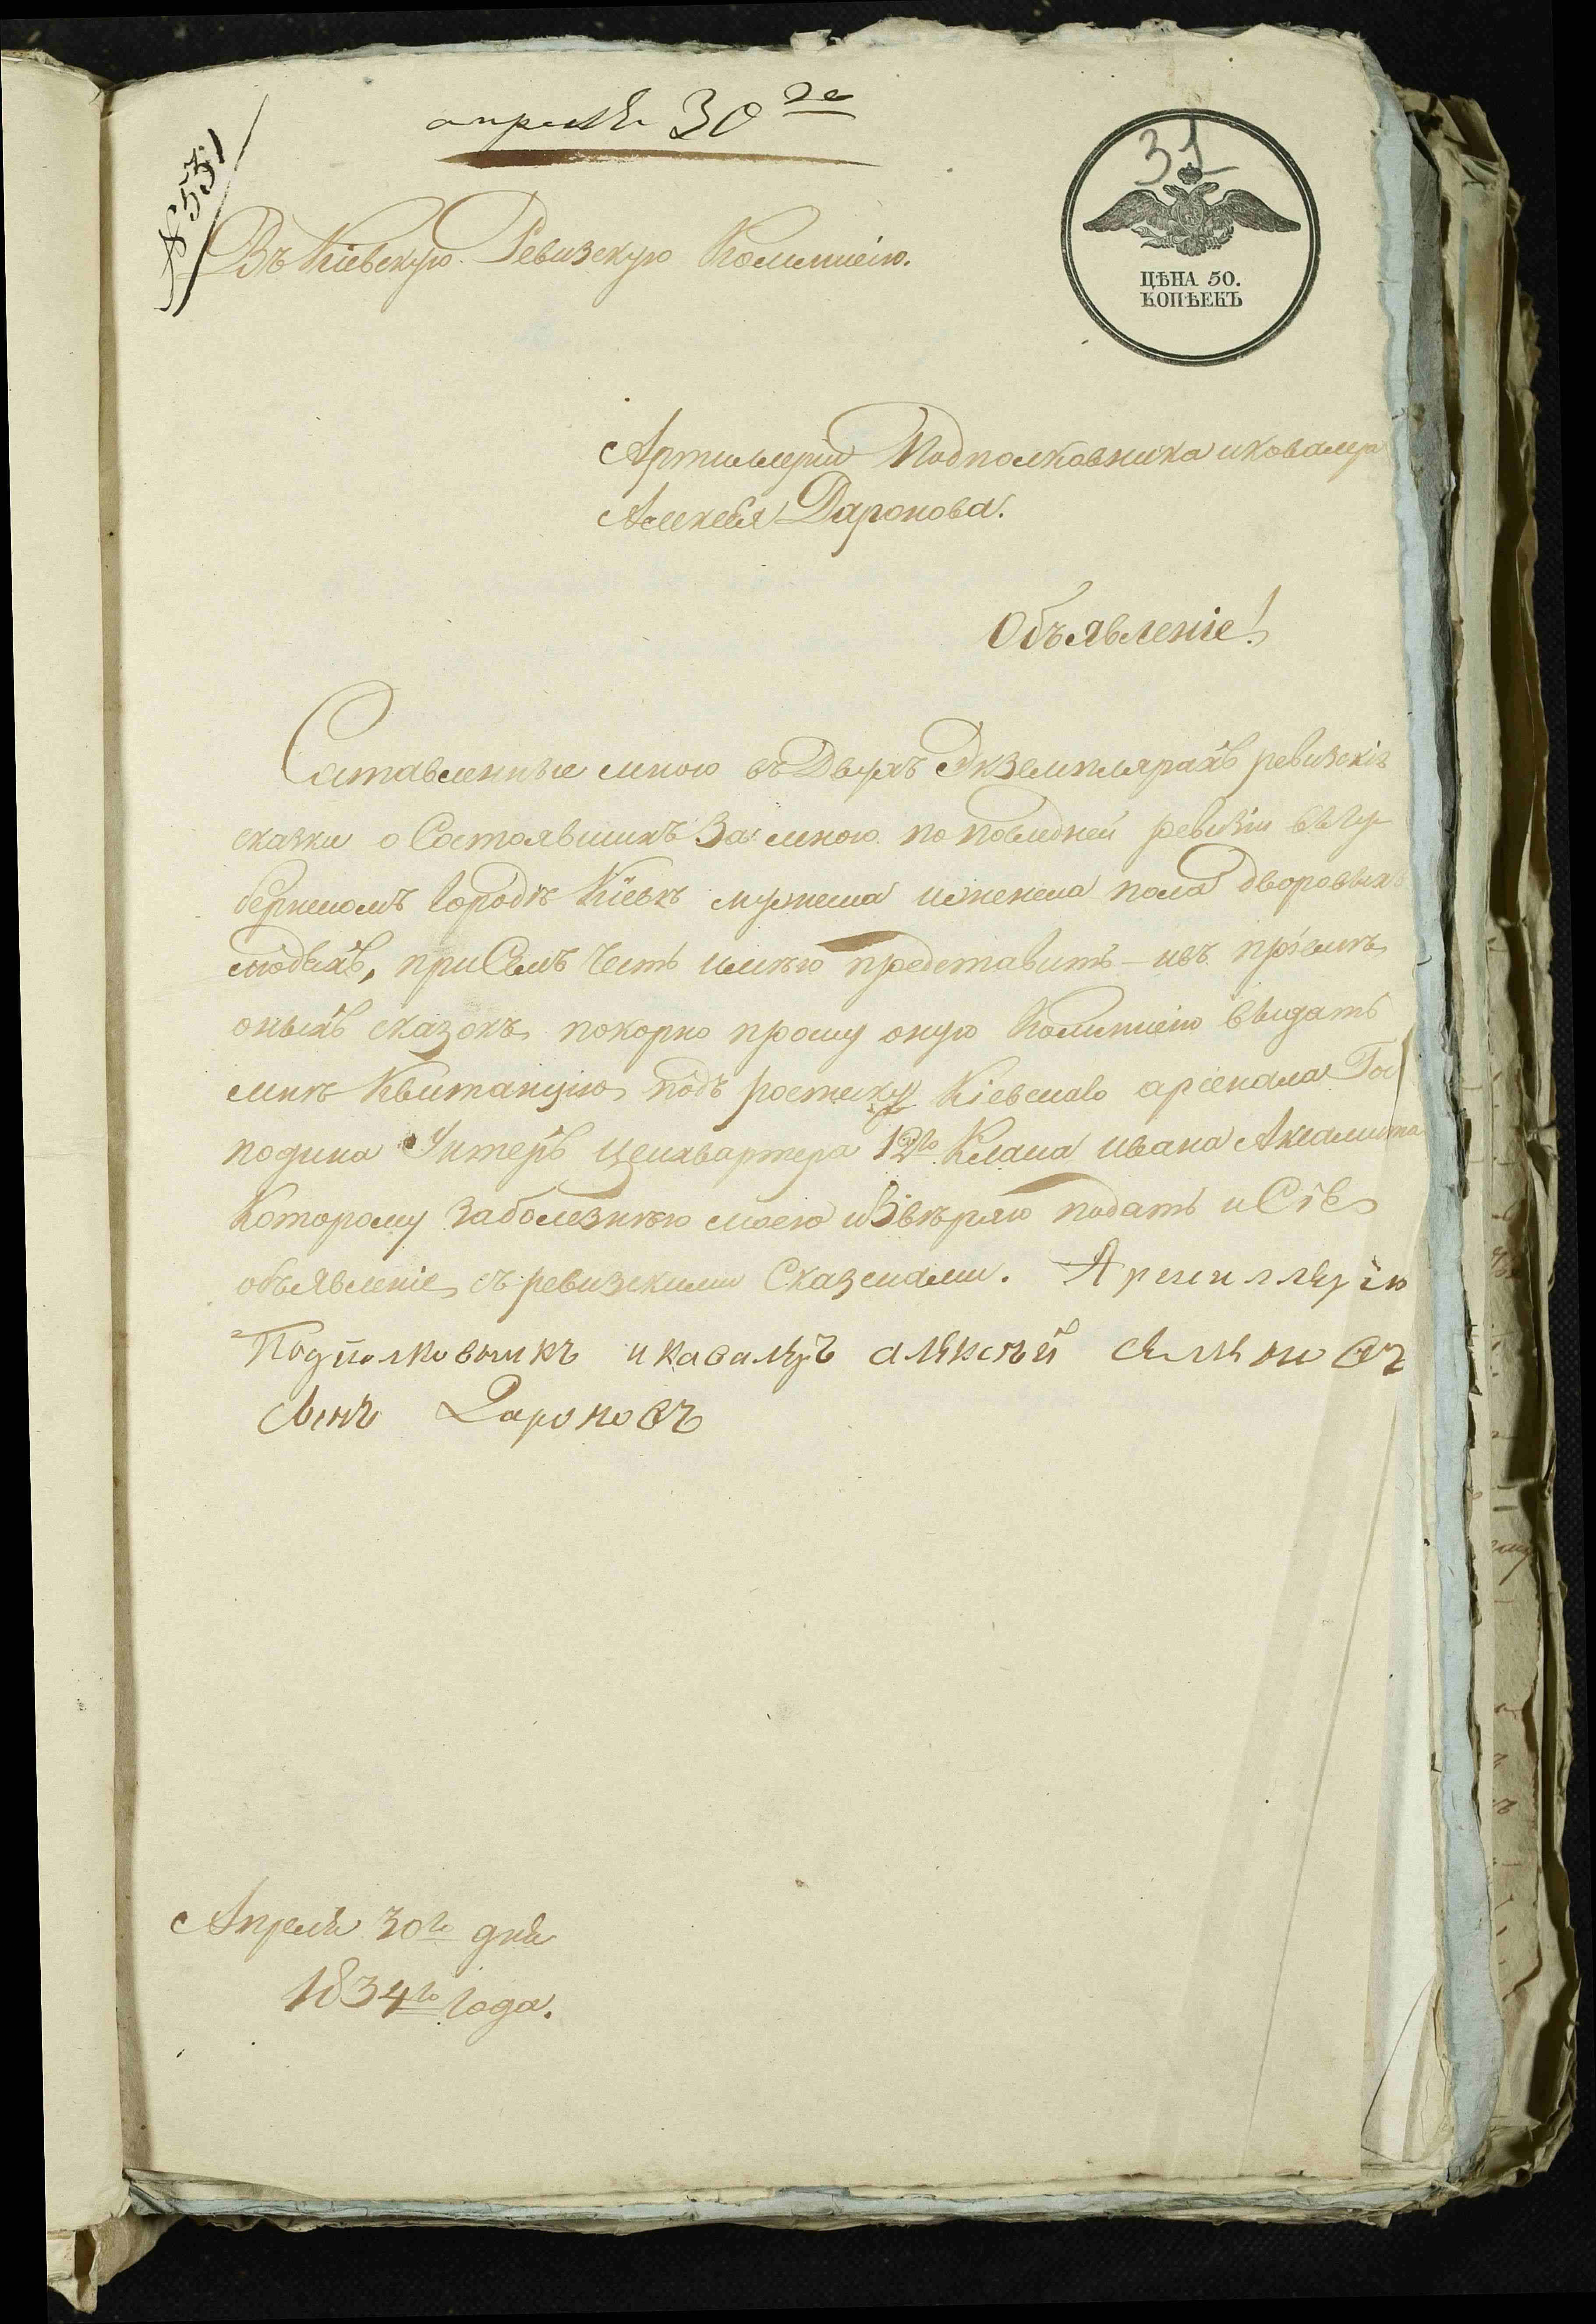 апреля 30го
31
Въ Кіевскую Ревизскую Коммисію.
ЦѢНА 50.
КОПѢЕКЪ
Артиллеріи Подполковника и ковалера
Алексѣя Даронова.
Объявленіе!
Составленные мною въ Двухъ Экземплярахъ ревизскія
сказки о Состоявшихъ За мною по последней ревизіи въ Гу
бернскомъ городѣ Кіевѣ мужеска и женска пола дворовыхъ
людяхъ, при Семъ Честь имѣю представить - ивъ пріемѣ
оныхъ сказокъ покорно прошу оную Коммисію выдать
мнѣ Квитанцію подъ росписку Кіевскаго арсенала Гос
подина Унтеръ цейхвартера 12го Класа ивана
Которому заболезнѣю моею и Ввѣряю подать и Сіе
объявленіе съ ревизскими Сказками. Артиллеріи
Подполковникъ и кавалеръ алексѣй
сынъ Дароновъ
Апреля 30го дня
1834го года.